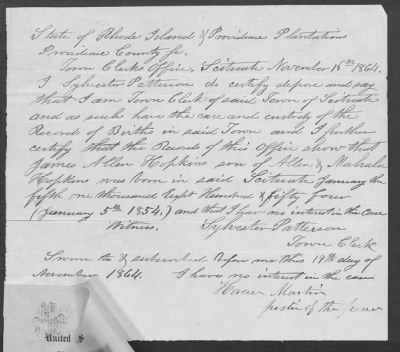 State of Rhode Island & Providence Plantations
Providence County Sc.
Town Clerks Office, Scituate November 18th 1864.
I Sylvester Patterson do certify depose and say
that I am Town Clerk of said Town of Scituate
and as such have the care and custody of the
Records of Births in said Town and I further
certify that the Records of this Office show that
James Allen Hopkins son of Allen &
Hopkins was born in said Scituate January the
fifth, one thousand Eight Hundred & fifty four
(January 5th 1854.) and that I have no interest in this case
Witness. Sylvester Patterson
Town Clerk
Sworn to & subscribed before me this 19th day of
November 1864. I have no interest in the case
Martin
Justice of the peace
United S